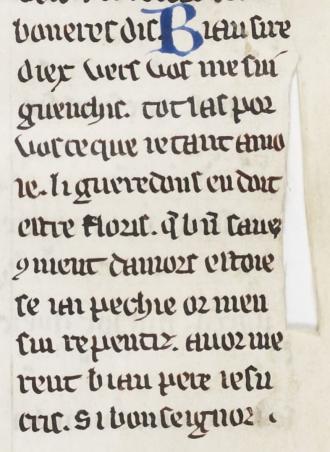 boneres dis Biau sire
diex vers vos me sui
guenchis. tot las por
vos ce que ie tant amo
ie. li gueredons en doit
estre floris. q̄ bn̄ savez
ꝯment damors estoie
se iai pechie or men
sui repentiz. auor me
rent biau pere iesu
cris. Si bon seignor